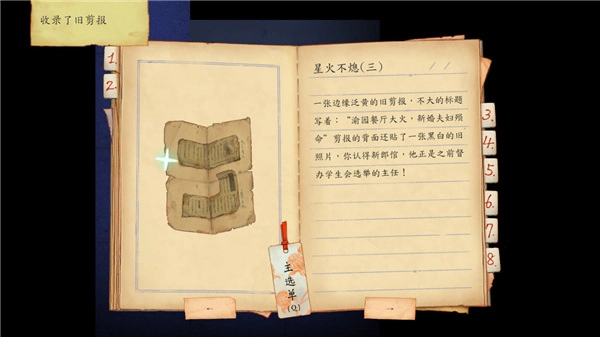 收录了旧剪报
1.
2.
星火不熄(三)
/ /
一张边缘泛黄的旧剪报，不大的标题
写着："渝园餐厅大火，新婚夫妇殒
命"剪报的背面还贴了一张黑白的旧
照片，你认得新郎倌，他正是之前督
办学生会选举的主任！
3.
4.
5.
6.
7.
8.
主选单
(Q)
←
→